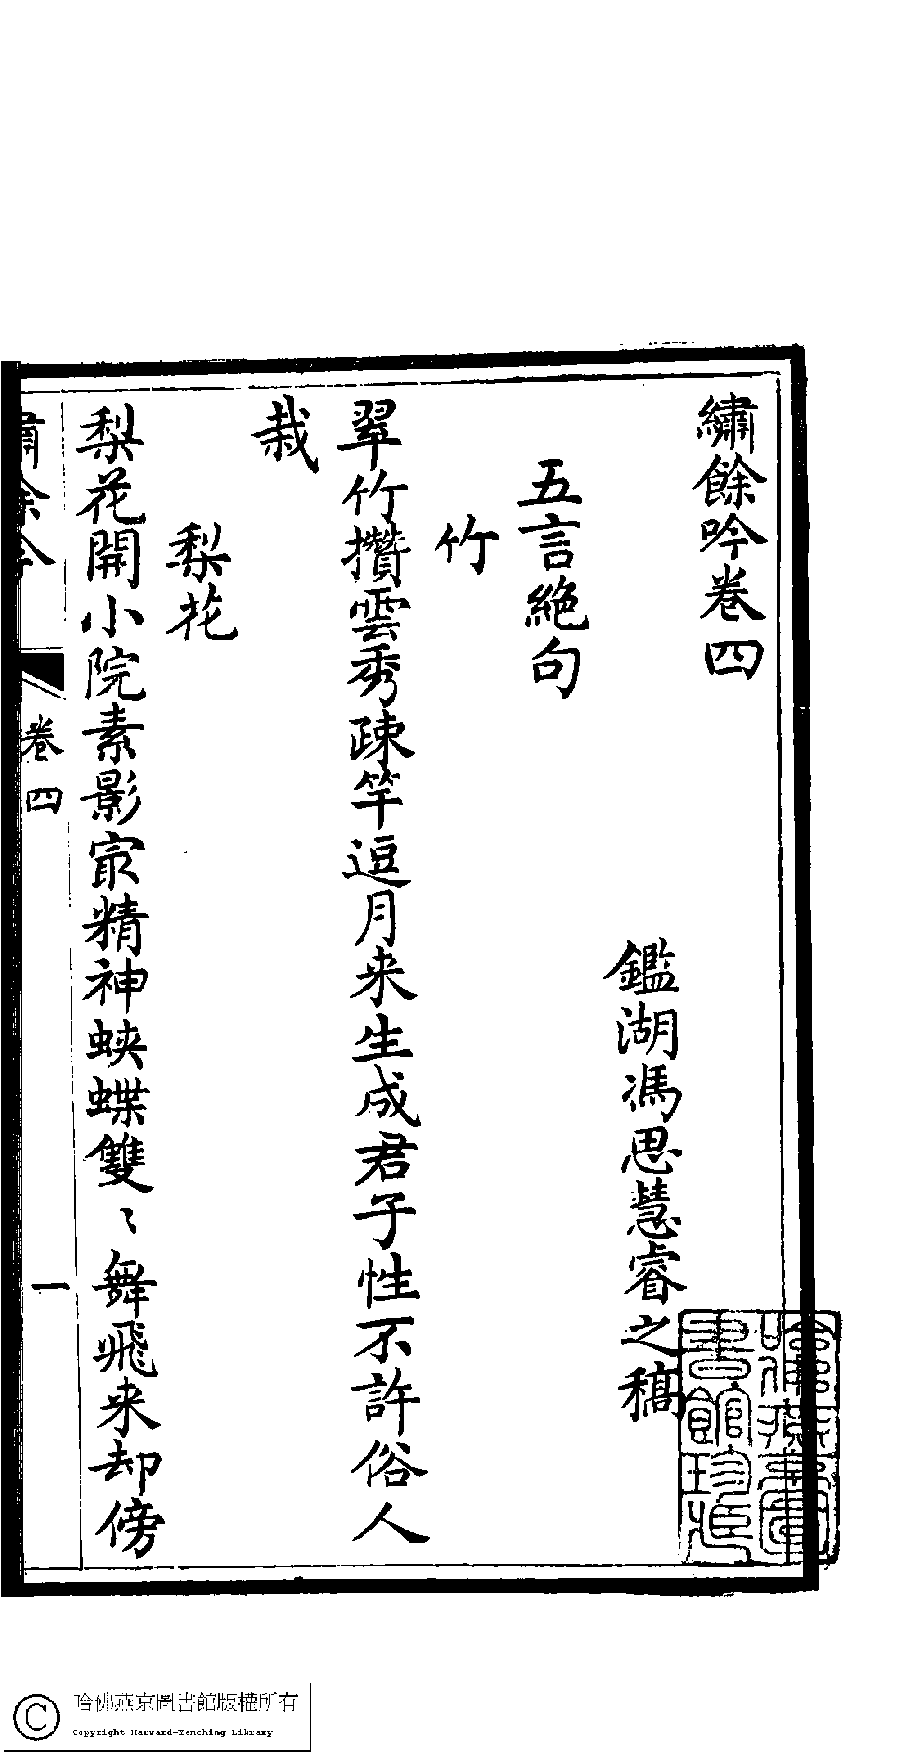 繡餘吟卷四
鑑湖馮思慧睿之稿
五言絶句
竹
翠竹攢雲秀疎竿逗月来生成君子性不許俗人
栽
梨花
梨花開小院素影㝡精神蛺蝶雙〻舞飛来却傍
繡餘吟
卷四
一
哈佛燕京圖書館珍藏
哈佛燕京圖書館版權所有
Copyright Harvard-Yenching Library